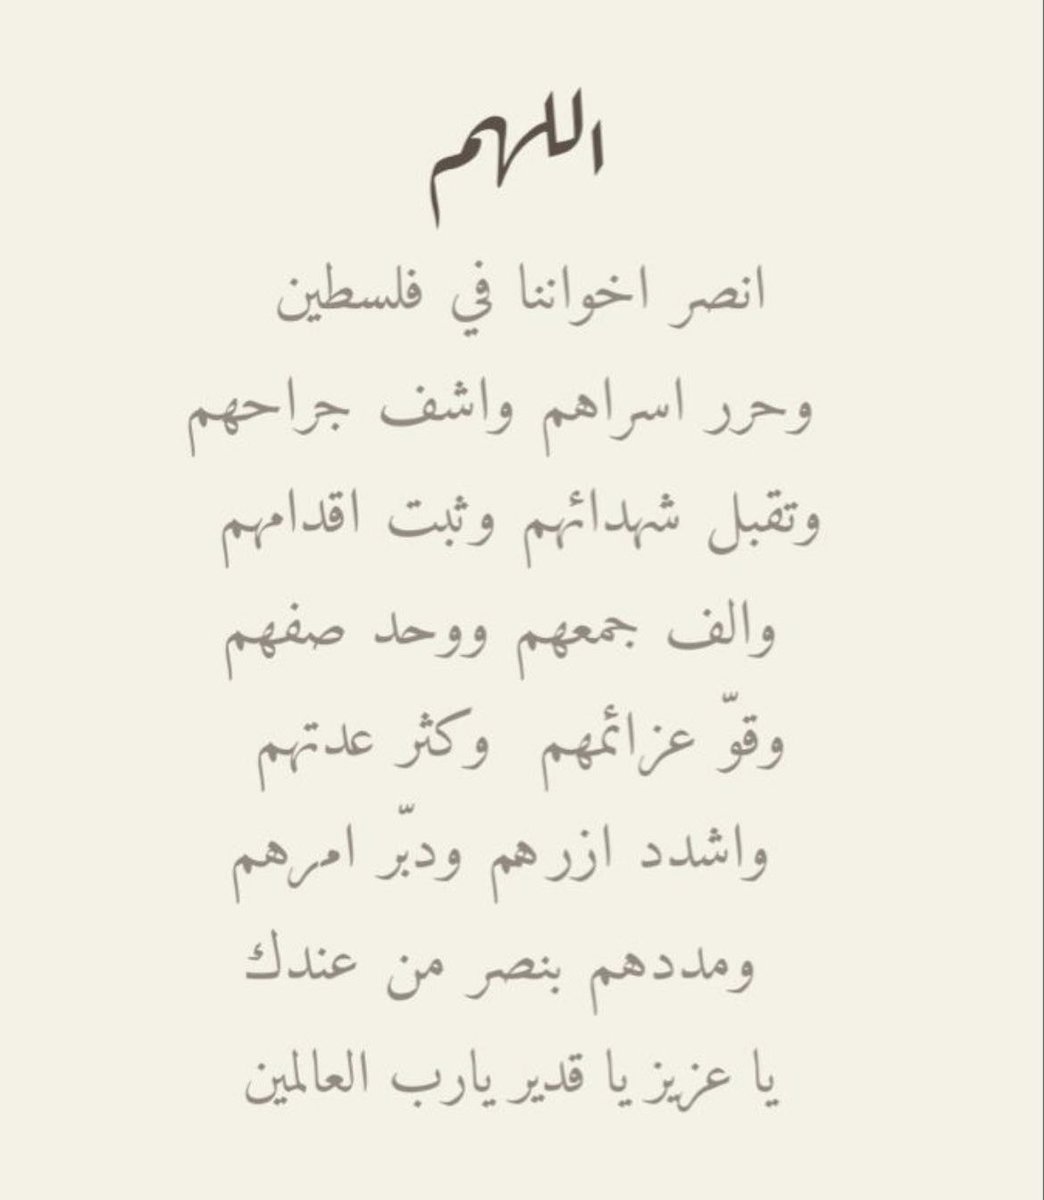 اللهم
انصر اخواننا في فلسطين
وحرر اسراهم واشف جراحهم
وتقبل شهدائهم وثبت اقدامهم
والف جمعهم ووحد صفهم
وقوّ عزائمهم وكثر عدتهم
واشدد ازرهم ودبّر امرهم
ومددهم بنصر من عندك
يا عزيز يا قدير يارب العالمين